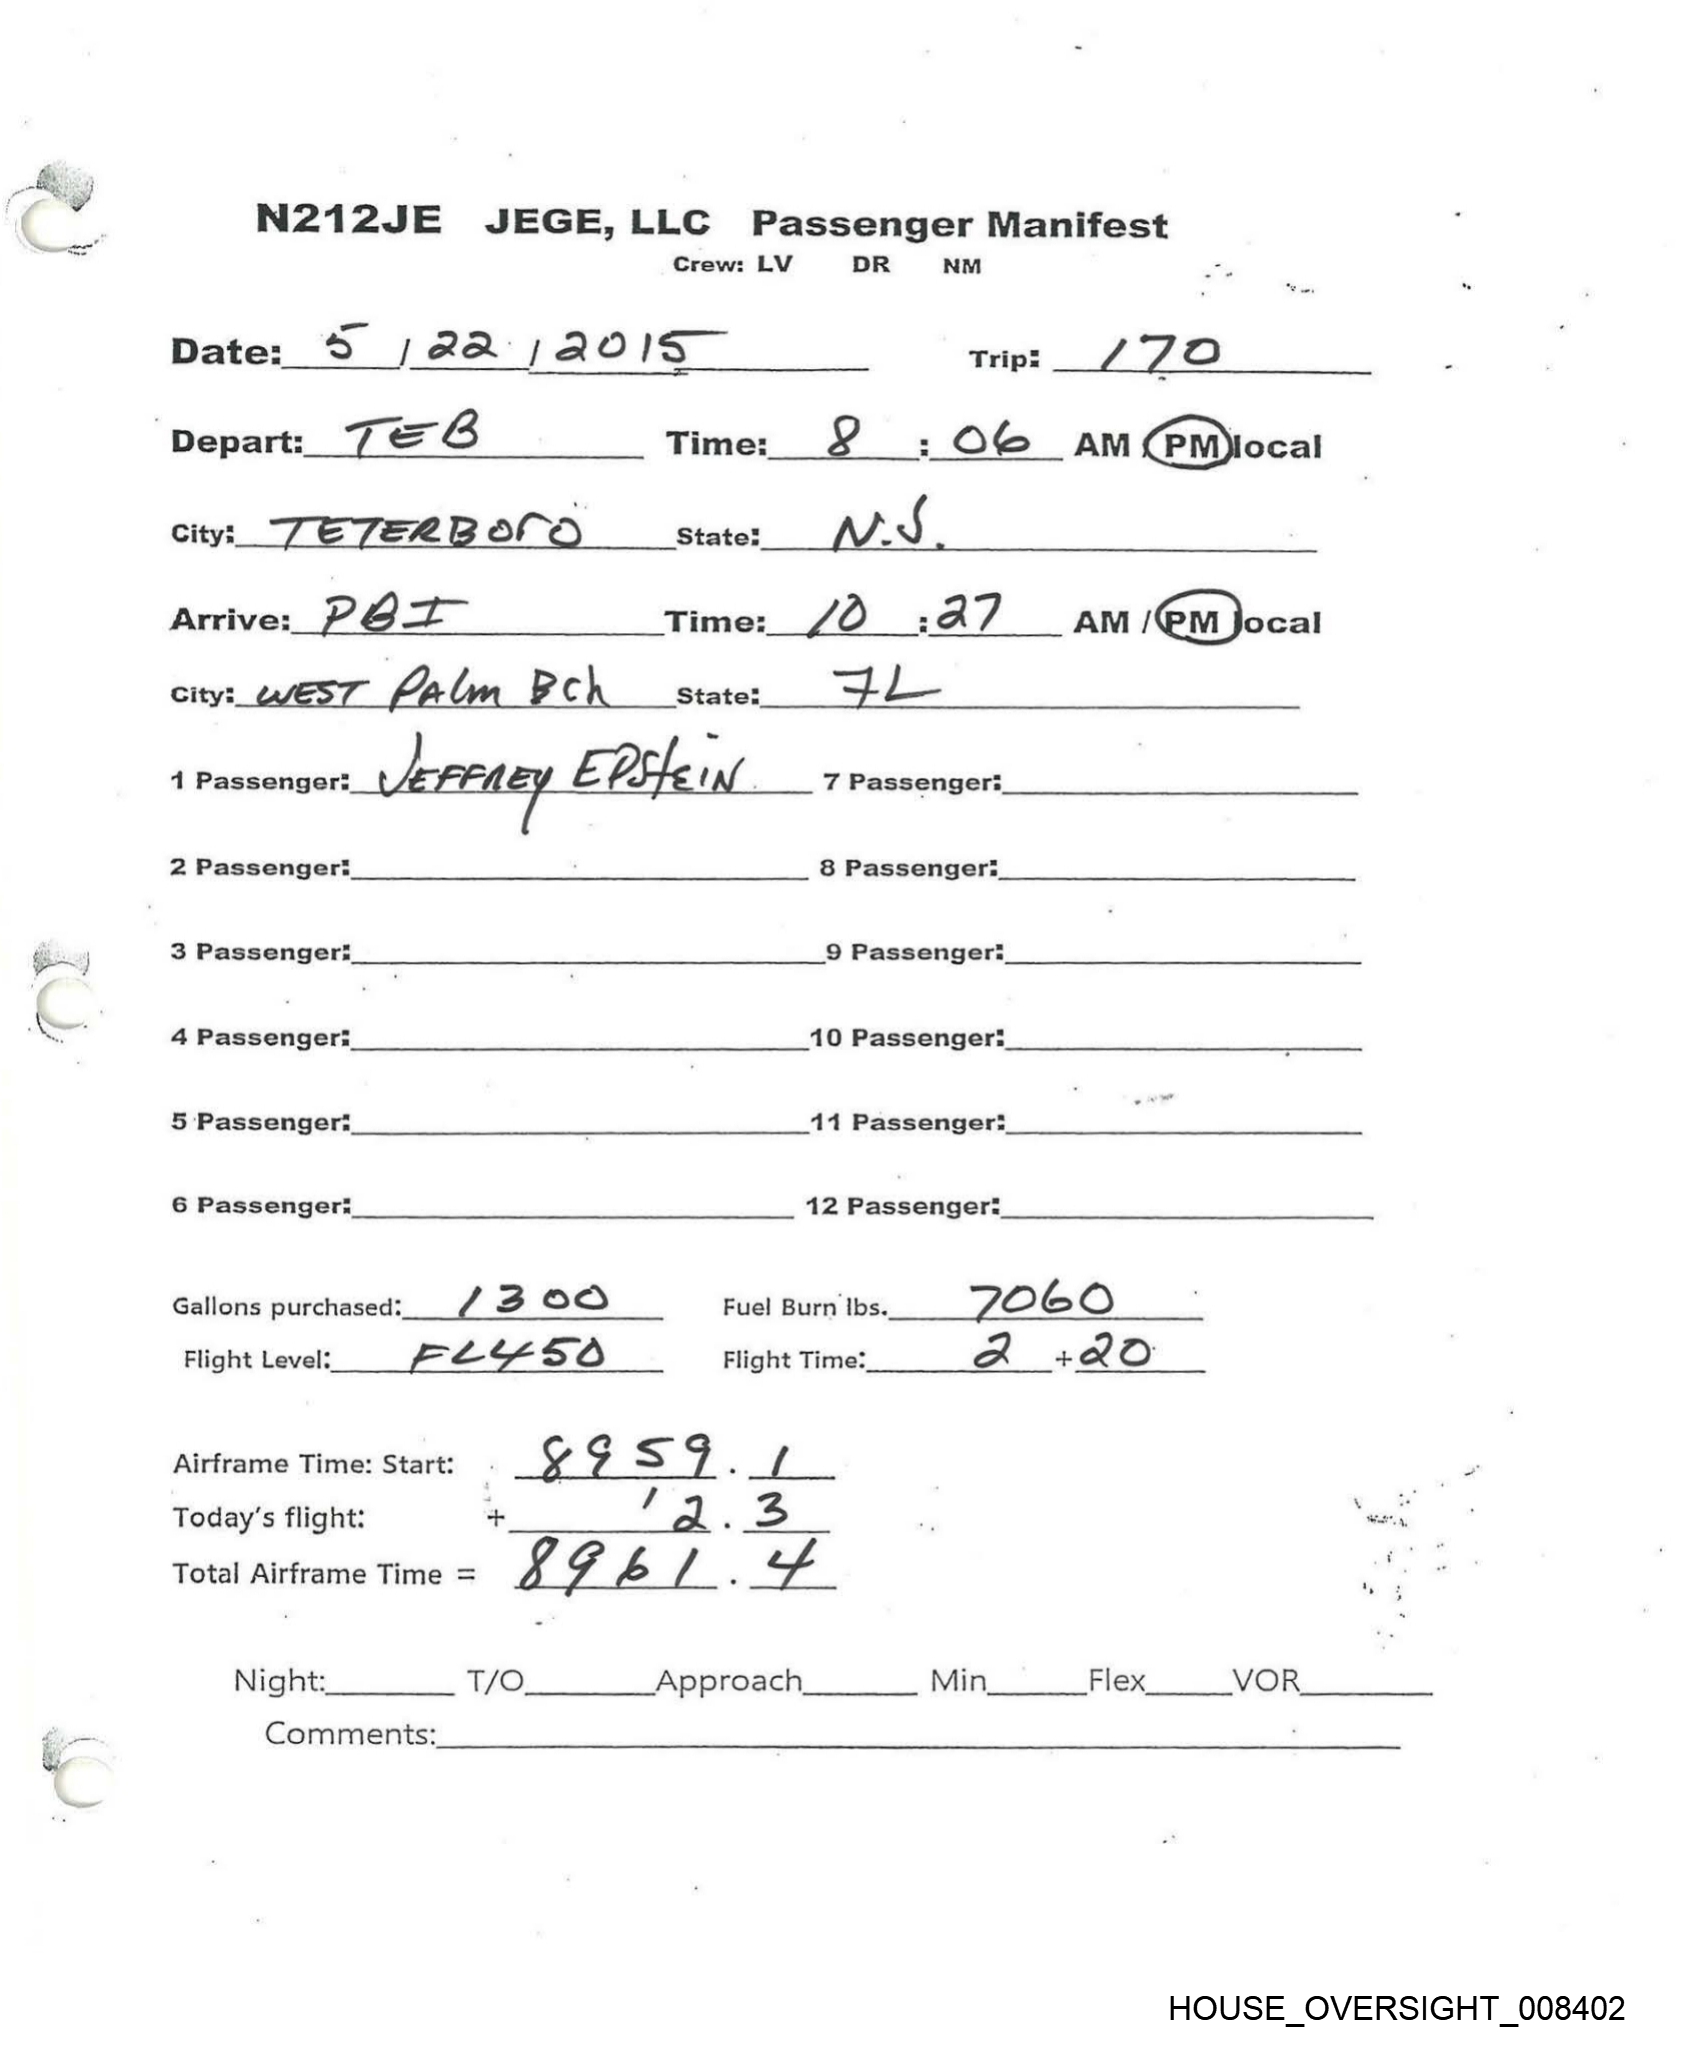 N212JE JEGE, LLC Passenger Manifest
Crew: LV DR NM
Date: 5 / 22 / 2015 Trip: 170
Depart: TEB Time: 8 : 06 AM / PM local
City: TETERBORO State: N.J.
Arrive: PBI Time: 10 : 27 AM / PM local
City: WEST PALM Bch State: FL
1 Passenger: JEFFREY EPStEIN 7 Passenger:
2 Passenger: 8 Passenger:
3 Passenger: 9 Passenger:
4 Passenger: 10 Passenger:
5 Passenger: 11 Passenger:
6 Passenger: 12 Passenger:
Gallons purchased: 1300 Fuel Burn lbs. 7060
Flight Level: FL450 Flight Time: 2 + 20
Airframe Time: Start: 8959.1
Today's flight: + 2.3
Total Airframe Time = 8961.4
Night: T/O Approach Min Flex VOR
Comments:
HOUSE_OVERSIGHT_008402